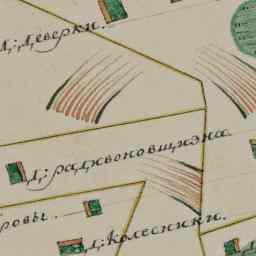 Д: Деверки.
Д: радивоновщизна.
ровы.
Д: Колесники.